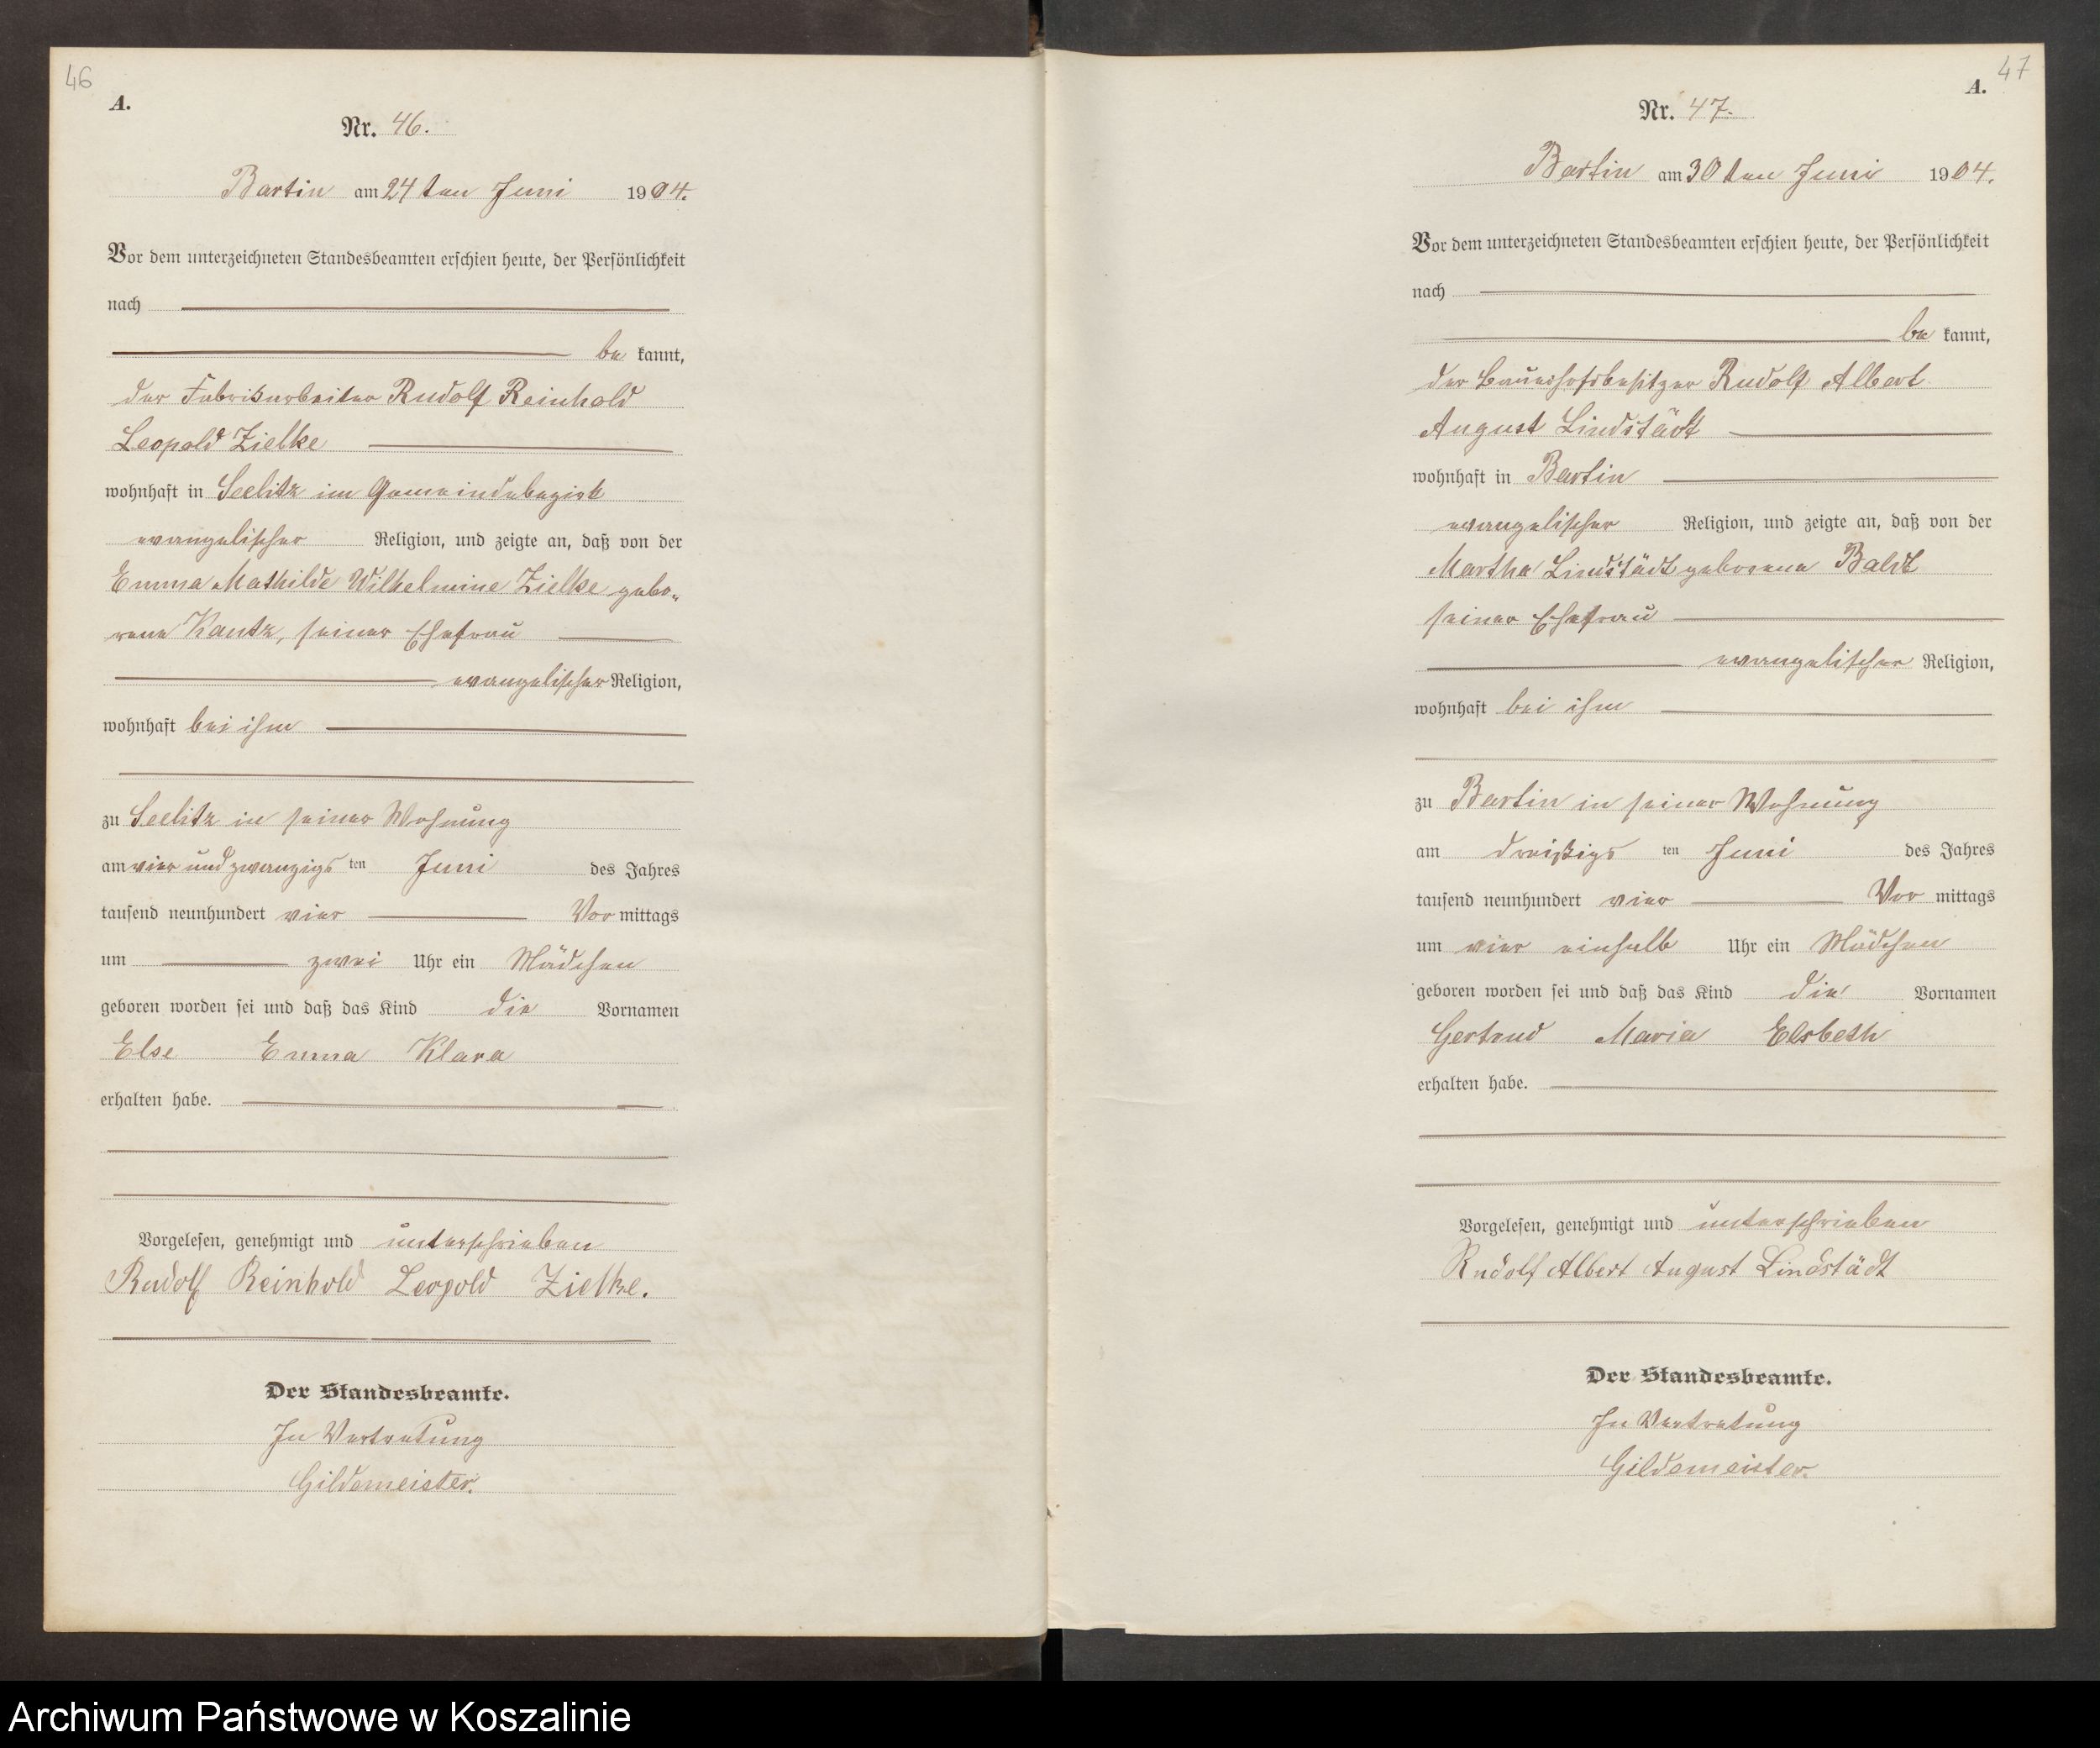 46
A.
Nr. 46.
Bartin am 24 ten Juni 1904.
Vor dem unterzeichneten Standesbeamten erschien heute, der Persönlichkeit
nach
be kannt,
der Fabrikarbeiter Rudolf Reinhold
Leopold Zielke
wohnhaft in Seelitz im Gemeindebezirk
evangelischer Religion, und zeigte an, daß von der
Emma Mathilde Wilhelmine Zielke gebo-
rene Kautz, seiner Ehefrau
evangelischer Religion,
wohnhaft bei ihm
zu Seelitz in seiner Wohnung
am vier und zwanzigs ten Juni des Jahres
tausend neunhundert vier Vor mittags
um zwei Uhr ein Mädchen
geboren worden sei und daß das Kind die Vornamen
Else Emma Klara
erhalten habe.
Vorgelesen, genehmigt und unterschrieben
Rudolf Reinhold Leopold Zielke.
Der Standesbeamte.
In Vertretung
Gildemeister.
47
A.
Nr. 47.
Bartin am 30 ten Juni 1904.
Vor dem unterzeichneten Standesbeamten erschien heute, der Persönlichkeit
nach
be kannt,
der Bauerhofsbesitzer Rudolf Albert
August Lindstädt
wohnhaft in Bartin
evangelischer Religion, und zeigte an, daß von der
Martha Lindstädt geborene Baldt
seiner Ehefrau
evangelischer Religion,
wohnhaft bei ihm
zu Bartin in seiner Wohnung
am dreißigs ten Juni des Jahres
tausend neunhundert vier Vor mittags
um vier einhalb Uhr ein Mädchen
geboren worden sei und daß das Kind die Vornamen
Gertrud Maria Elsbeth
erhalten habe.
Vorgelesen, genehmigt und unterschrieben
Rudolf Albert August Lindstädt
Der Standesbeamte.
In Vertretung
Gildemeister.
Archiwum Państwowe w Koszalinie